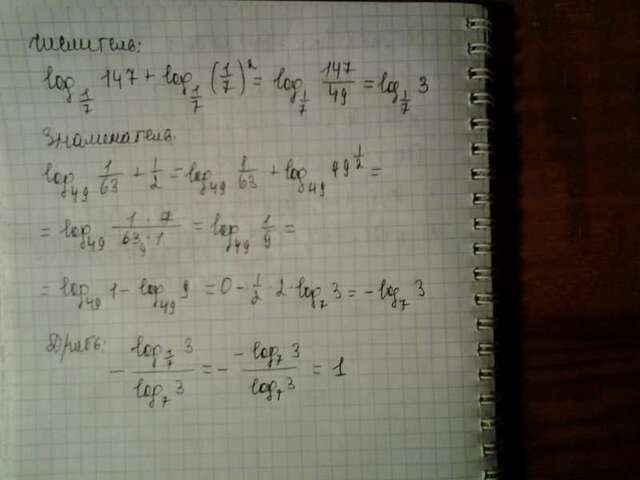 Числитель:
log_{1/7} 147 + log_{1/7} (1/7)^2 = log_{1/7} 147/49 = log_{1/7} 3
Знаменатель.
log_{49} 1/63 + 1/2 = log_{49} 1/63 + log_{49} 49^{1/2} =
= log_{49} (1 · 7)/(63 · 1) 9 = log_{49} 1/9 =
= log_{49} 1 - log_{49} 9 = 0 - 1/2 · 2 · log_7 3 = - log_7 3
Дробь:
- (log_{1/7} 3)/(log_7 3) = - (-log_7 3)/(log_7 3) = 1